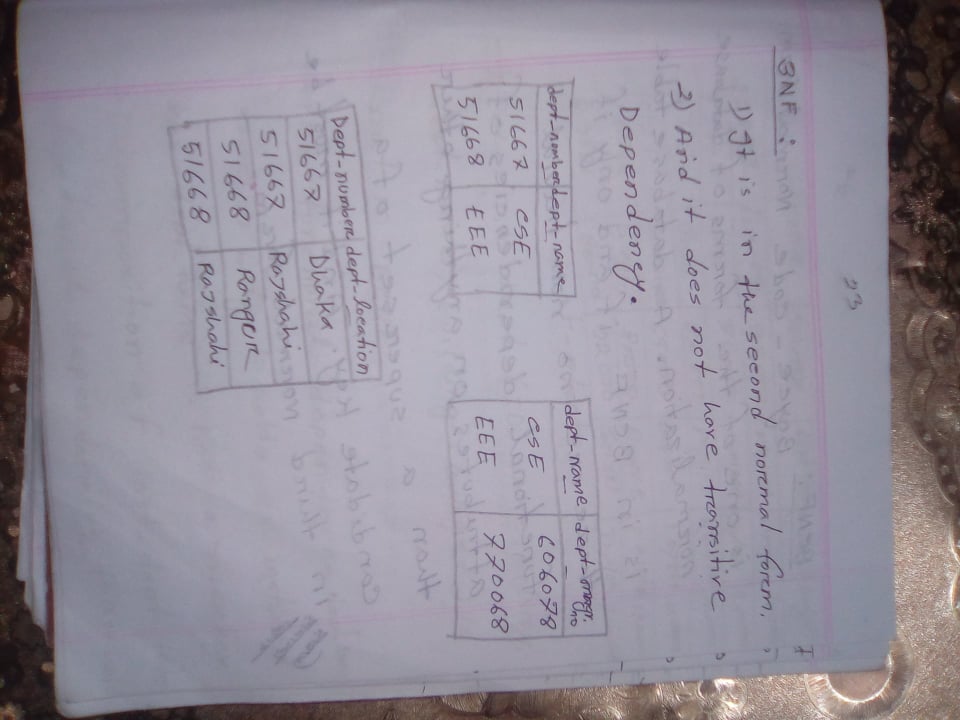 23
3NF :
1) It is in the second normal form.
2) And it does not have transitive
Dependency.
dept-number dept-name
51667 CSE
51668 EEE
dept-name dept-mngr. no
CSE 606078
EEE 770068
Dept-number dept-location
51667 Dhaka
51667 Rajshahi
51668 Rangpur
51668 Rajshahi